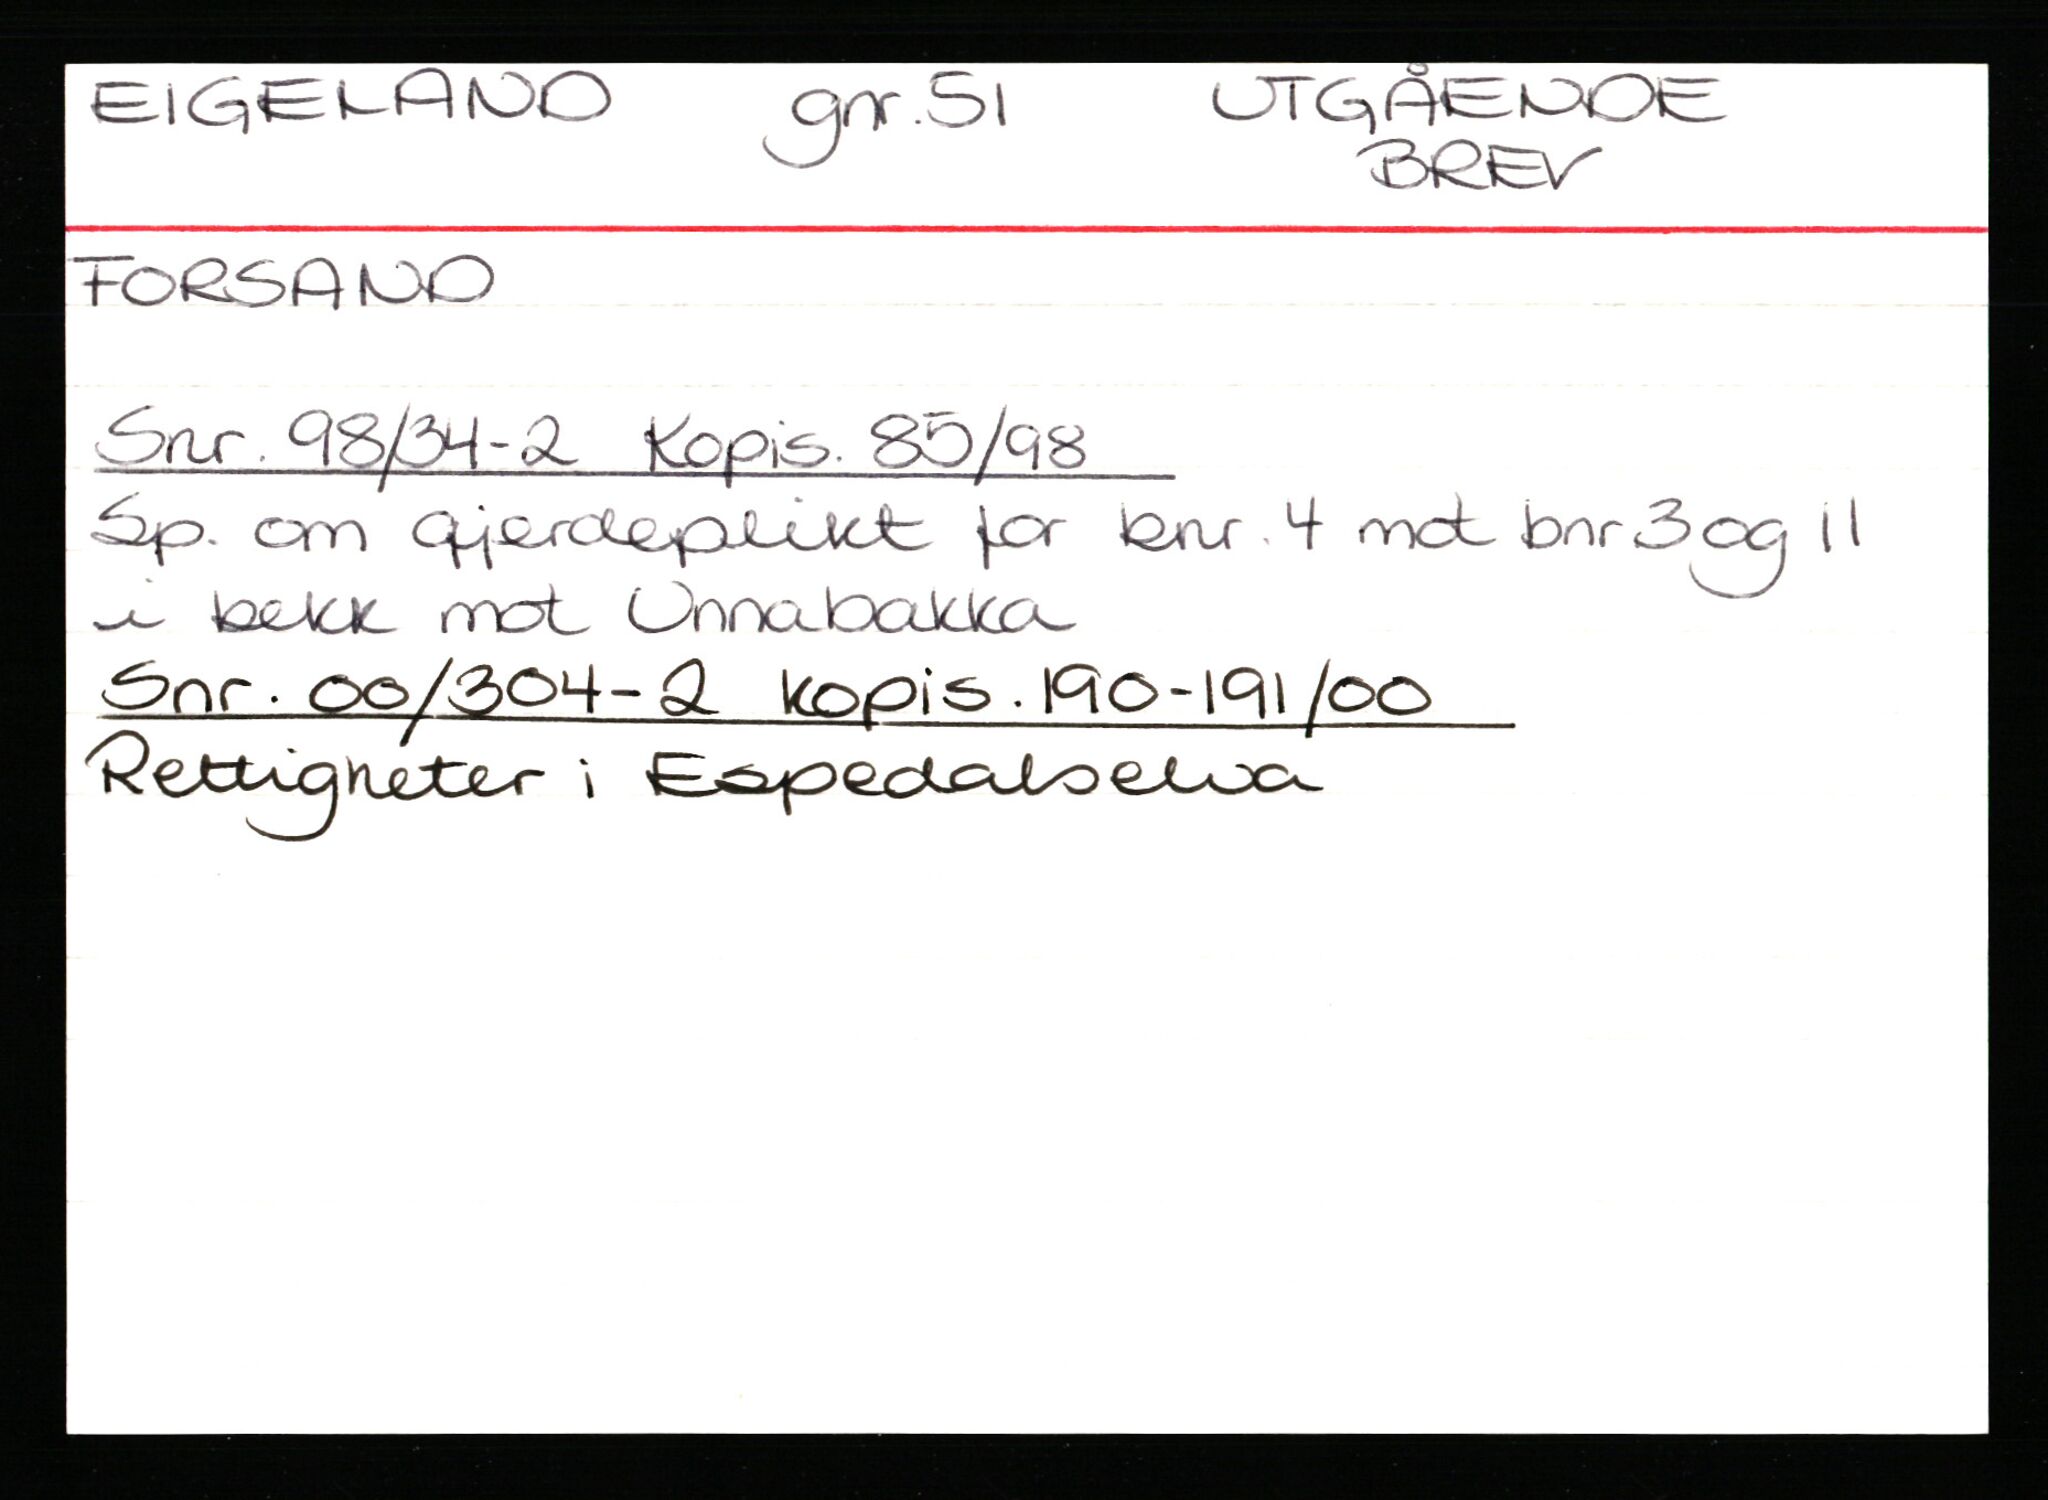 EIGELAND gnr. 51 UTGÅENDE
BREV
FORSAND
Snr. 98/34-2 Kopis. 85/98
Sp. om gjerdeplikt for bnr. 4 mot bnr 3 og 11
i bekk mot Unnabakka
Snr. 00/304-2 kopis. 190-191/00
Rettigheter i Espedalselva